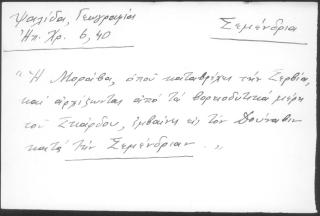 Ψαλίδα, Γεωγραφία
Ἠπ. Χρ. 6, 40
Σεμένδρια
"Ἡ Μοράβα, ὁποὺ καταβρέχει τὴν Σερβία,
καὶ ἀρχίζοντας ἀπὸ τὰ βορειοδυτικὰ μέρη
τοῦ Σκάρδου, ἐμβαίνει εἰς τὸν Δούναβιν
κατὰ τὴν Σεμένδριαν."